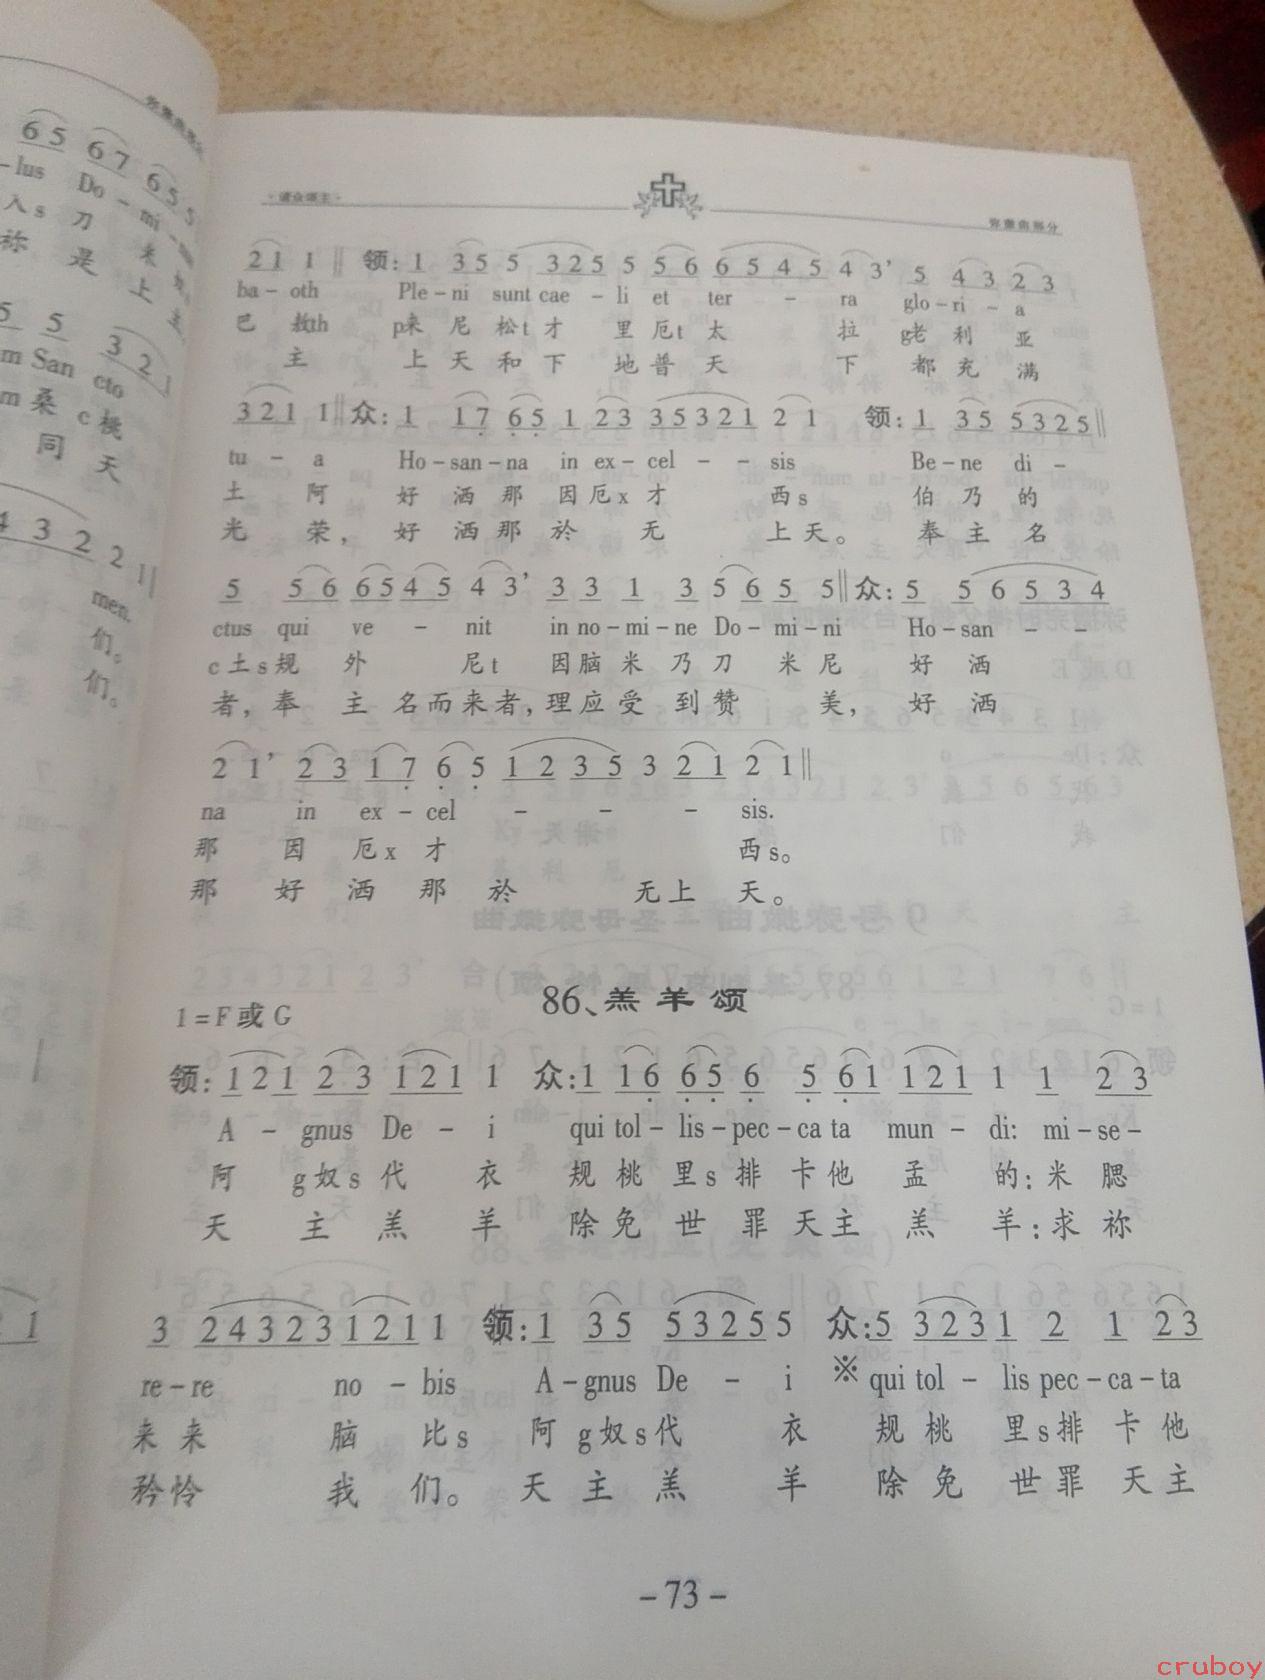 弥撒曲部分
2 1 1 ‖ 领: 1 3 5 5 3 2 5 5 5 6 6 5 4 5 4 3’ 5 4 3 2 3
ba - oth Ple - ni sunt cae - li et ter - ra glo - ri - a
巴 th p来 尼 松t 才 里 厄t 太 拉 g老 利 亚
主 上 天 和 下 地 普 天 下 都 充 满
3 2 1 1 ‖ 众: 1 1 7 6 5 1 2 3 3 5 3 2 1 2 1 领: 1 3 5 5 3 2 5 ‖
tu - a Ho - san - na in ex - cel - - sis Be - ne di -
土 阿 好 洒 那 因 厄x 才 西s 伯 乃 的
光 荣, 好 洒 那 於 无 上 天。 奉 主 名
5 5 6 6 5 4 5 4 3’ 3 3 1 3 5 6 5 5 ‖ 众: 5 5 6 5 3 4
ctus qui ve - nit in no - mi - ne Do - mi - ni Ho - san - -
c土s规 外 尼t 因 脑 米 乃 刀 米 尼 好 洒
者, 奉 主 名 而 来 者, 理 应 受 到 赞 美, 好 洒
2 1’ 2 3 1 7 6 5 1 2 3 5 3 2 1 2 1 ‖
na in ex - cel - - - sis.
那 因 厄x 才 西s。
那 好 洒 那 於 无 上 天。
86、羔羊颂
1=F或G
领: 1 2 1 2 3 1 2 1 1 众: 1 1 6 6 5 6 5 6 1 1 2 1 1 1 2 3
A - gnus De - i qui tol - lis - pec - ca ta mun - di: mi - se -
阿 g奴s代 衣 规 桃 里s排 卡 他 孟 的: 米 腮
天 主 羔 羊 除 免 世 罪 天 主 羔 羊: 求 祢
3 2 4 3 2 3 1 2 1 1 领: 1 3 5 5 3 2 5 5 众: 5 3 2 3 1 2 1 2 3
re - re no - bis A - gnus De - i ※ qui tol - lis pec - ca - ta
来 来 脑 比s 阿 g奴s代 衣 规 桃 里s排 卡 他
矜 怜 我 们。 天 主 羔 羊 除 免 世 罪 天 主
- 73 -
cruboy